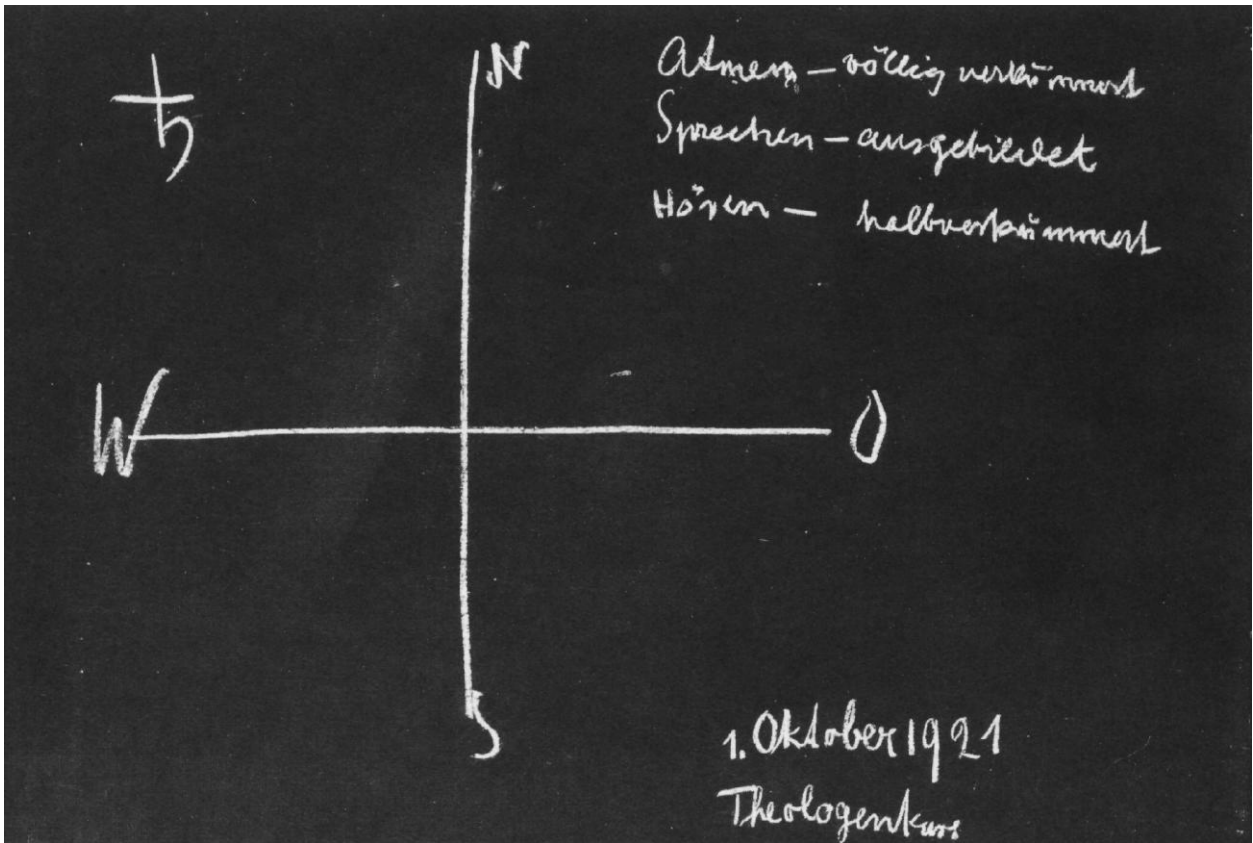 ♄
N
Atmen – völlig verkümmert
Sprechen – ausgebildet
Hören – halbverkümmert
W
O
S
1. Oktober 1921
Theologenkurs